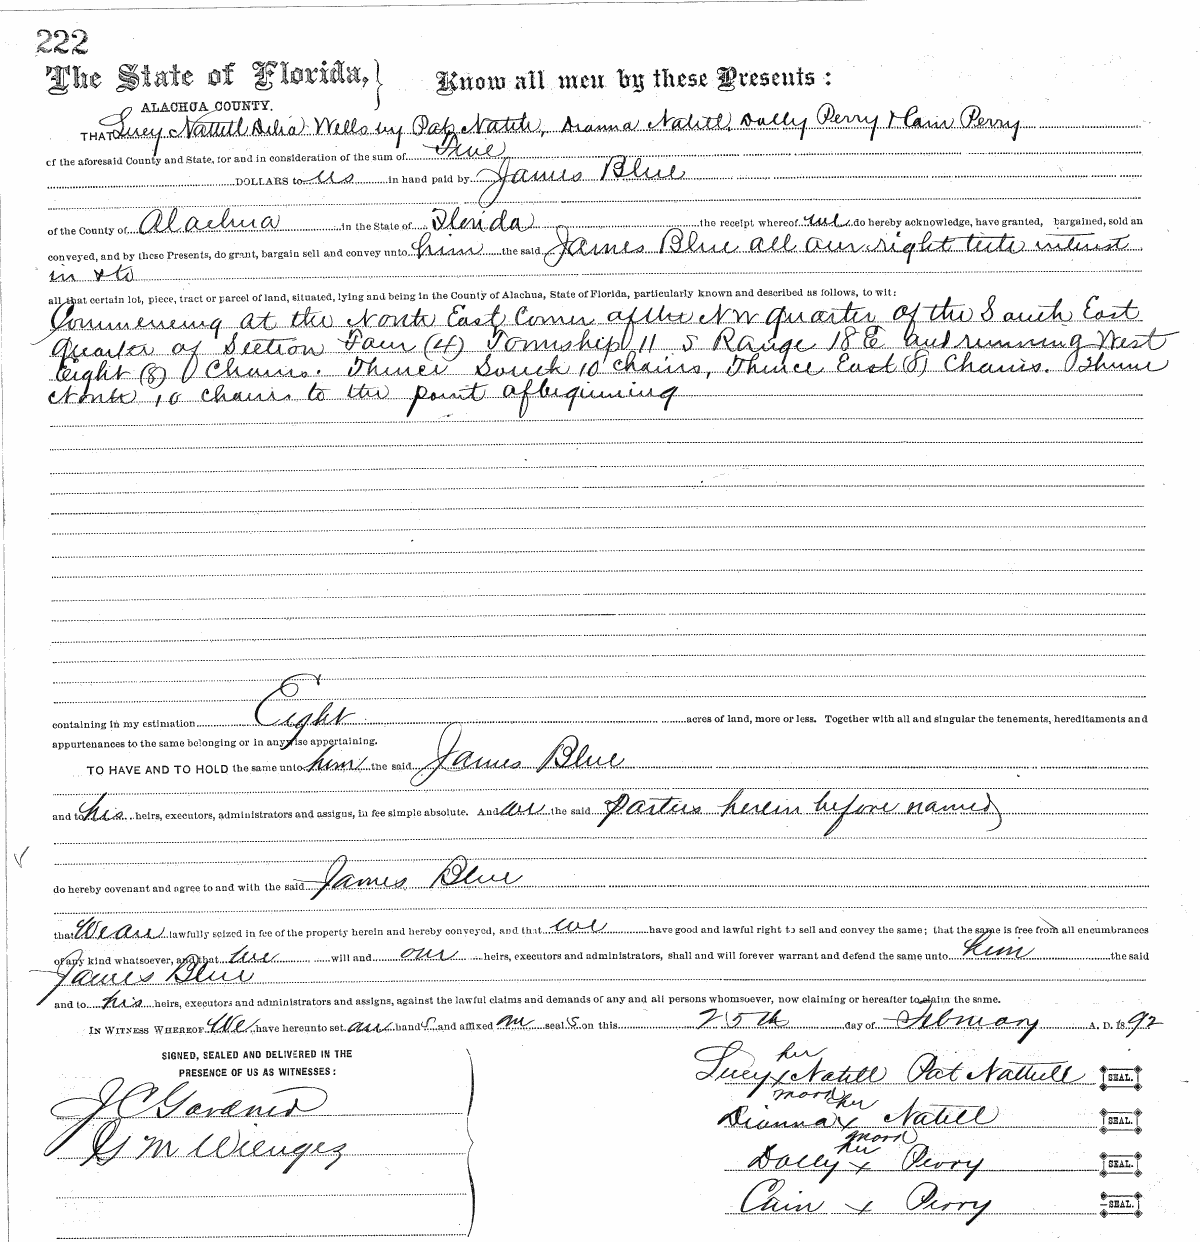 222
The State of Florida, } Know all men by these Presents:
ALACHUA COUNTY.
THAT Lucy Nattill Delia Wells by Pat Natile, Dianna Natill, Dolly Perry & Cain Perry
of the aforesaid County and State, for and in consideration of the sum of Five
DOLLARS to us in hand paid by James Blue
of the County of Alachua in the State of Florida the receipt whereof we do hereby acknowledge, have granted, bargained, sold an
conveyed, and by these Presents, do grant, bargain sell and convey unto him the said James Blue all our right title interest
in & to
all that certain lot, piece, tract or parcel of land, situated, lying and being in the County of Alachua, State of Florida, particularly known and described as follows, to wit:
Commencing at the North East Corner of the NW quarter of the South East
quarter of Section Four (4) Township 11 S Range 18 E and running West
Eight (8) Chains. Thence South 10 chains, Thence East (8) Chains. Thence
North 10 chains to the point of beginning
containing in my estimation Eight acres of land, more or less. Together with all and singular the tenements, hereditaments and
appurtenances to the same belonging or in anywise appertaining.
TO HAVE AND TO HOLD the same unto him the said James Blue
and to his heirs, executors, administrators and assigns, in fee simple absolute. And we the said parties herein before named
do hereby covenant and agree to and with the said James Blue
that We are lawfully seized in fee of the property herein and hereby conveyed, and that we have good and lawful right to sell and convey the same; that the same is free from all encumbrances
of any kind whatsoever, and that we will and our heirs, executors and administrators, shall and will forever warrant and defend the same unto him the said
James Blue
and to his heirs, executors and administrators and assigns, against the lawful claims and demands of any and all persons whomsoever, now claiming or hereafter to claim the same.
IN WITNESS WHEREOF We have hereunto set our hands and affixed our seals on this 25th day of February A. D. 1892
SIGNED, SEALED AND DELIVERED IN THE
PRESENCE OF US AS WITNESSES:
J C Gardner
G M Wienges
her
Lucy x Natill Pat Nattull SEAL.
mark her
Dianna x Natill SEAL.
mark
her
Dolly x Perry SEAL.
Cain x Perry SEAL.